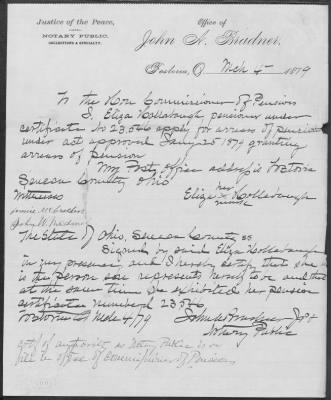 Justice of the Peace,
AND
NOTARY PUBLIC.
COLLECTIONS A SPECIALTY.
Office of
John A. Bradner,
Fostoria, O., Mch 4 1879
To the Hon Commissioner of Pensions
I, Eliza Hollabaugh, pensioner under
certificate No 23,566 apply for arrears of pension
under act approved Jany 25 1879 granting
arrears of pension
My Post office address is Fostoria
Seneca County Ohio
Witnesses
Eliza her mark Hollabaugh
The State of Ohio, Seneca County ss
Signed by said Eliza Hollabaugh
in my presence and I hereby certify that she
is the person she represents herself to be and that
at the same time she exhibited her pension
certificate numbered 23,566
Fostoria O Mch 4/79
Notary Public
of authority as Notary Public is on
file in office of Commissioner of Pensions